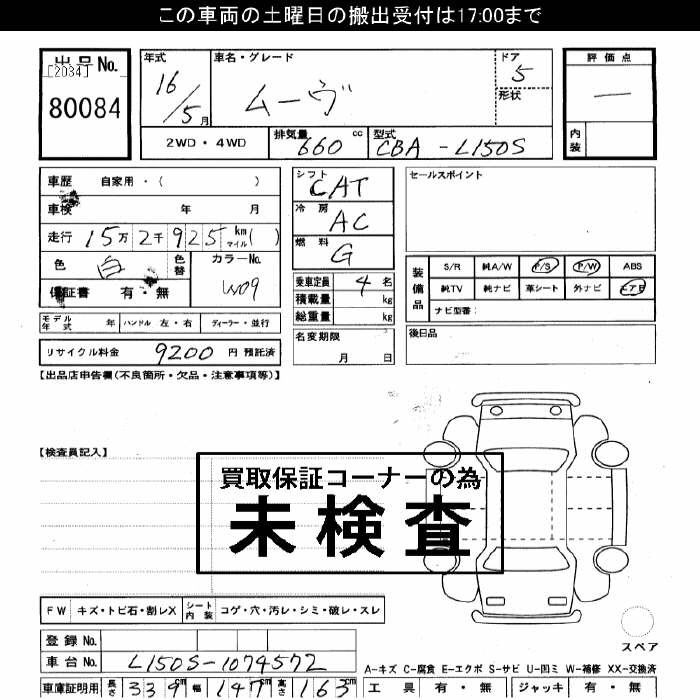 この車両の土曜日の搬出受付は17:00まで
出品No.
[2034]
80084
年式
16/5月
車名・グレード
ムーヴ
ドア
5
形状
評価点
一
内装
2WD・4WD
排気量
660 cc
型式
CBA-L150S
車歴 自家用・( )
車検 年 月
走行 15万2千925 km マイル( )
色 白 色替
カラーNo.
W09
保証書 有・無
モデル年式 年
ハンドル 左・右
ディーラー・並行
リサイクル料金 9200 円 預託済
シフト
CAT
冷房
AC
燃料
G
乗車定員 4 名
積載量 kg
総重量 kg
名変期限
月 日
セールスポイント
装備品
S/R 純A/W P/S P/W ABS
純TV 純ナビ 革シート 外ナビ エアB
ナビ型番:
後日品
【出品店申告欄(不良箇所・欠品・注意事項等)】
【検査員記入】
買取保証コーナーの為
未検査
FW キズ・トビ石・割レX
シート内装 コゲ・穴・汚レ・シミ・破レ・スレ
登録No.
車台No. L150S-1074572
車庫証明用 長さ 339cm 幅 147cm 高さ 163cm
スペア
A-キズ C-腐食 E-エクボ S-サビ U-凹ミ W-補修 XX-交換済
工具 有・無 ジャッキ 有・無